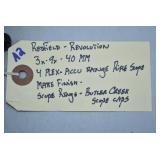 A2
Redfield - Revolution
3x-9x-40 MM
4 Plex-Accu Range Rifle Scope
Matte Finish -
Scope Rings - Butler Creek
Scope Caps